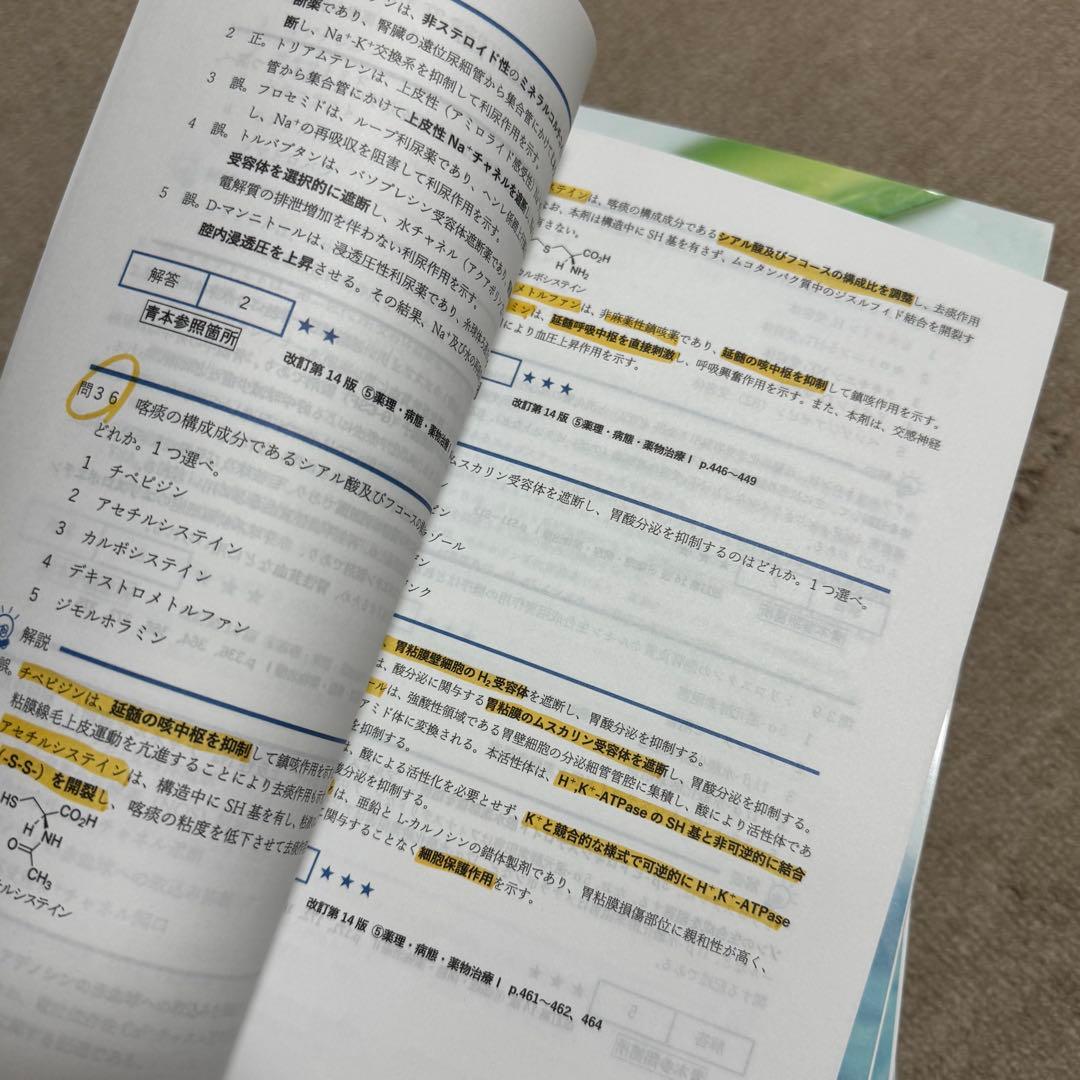 ンは、非ステロイド性のミネラルコル
断薬であり、腎臓の遠位尿細管から集合管にかけて
断し、Na⁺-K⁺交換系を抑制して利尿作用を示す。
2 正。トリアムテレンは、上皮性（アミロライド感受性）
管から集合管にかけて上皮性Na⁺チャネルを遮断し
3 誤。フロセミドは、ループ利尿薬であり、ヘンレ係蹄
し、Na⁺の再吸収を阻害して利尿作用を示す。
4 誤。トルバプタンは、バソプレシン受容体遮断薬であり
受容体を選択的に遮断し、水チャネル（アクアポリ
電解質の排泄増加を伴わない利尿作用を示す。
5 誤。D-マンニトールは、浸透圧性利尿薬であり、糸球体
腔内浸透圧を上昇させる。その結果、Na⁺及び水の再
解答 2 ★★
青本参照箇所
改訂第14版 ⑤薬理・病態・薬物治療
問36 喀痰の構成成分であるシアル酸及びフコースの
どれか。1つ選べ。
1 チペピジン
2 アセチルシステイン
3 カルボシステイン
4 デキストロメトルファン
5 ジモルホラミン
解説
誤。チペピジンは、延髄の咳中枢を抑制して鎮咳作用を示
粘膜線毛上皮運動を亢進することにより去痰作用を示
アセチルシステインは、構造中にSH基を有し、
(-S-S-)を開裂し、喀痰の粘度を低下させて去痰
HS CO₂H
H NH
O
CH₃
チルシステイン
ステインは、喀痰の構成成分であるシアル酸及びフコースの構成比を調整し、去痰作用
お、本剤は構造中にSH基を有さず、ムコタンパク質中のジスルフィド結合を開裂す
きない。
S CO₂H
H NH₂
カルボシステイン
メトルファンは、非麻薬性鎮咳薬であり、延髄の咳中枢を抑制して鎮咳作用を示す。
ンは、延髄呼吸中枢を直接刺激し、呼吸興奮作用を示す。また、本剤は、交感神経
により血圧上昇作用を示す。
★★★
改訂第14版 ⑤薬理・病態・薬物治療Ⅰ p.446～449
ムスカリン受容体を遮断し、胃酸分泌を抑制するのはどれか。1つ選べ。
ピン
ゾール
ン
ンク
、胃粘膜壁細胞のH₂受容体を遮断し、胃酸分泌を抑制する。
は、酸分泌に関与する胃粘膜のムスカリン受容体を遮断し、胃酸分泌を抑制する。
ールは、強酸性領域である胃壁細胞の分泌細管管腔に集積し、酸により活性体であ
アミド体に変換される。本活性体は、H⁺,K⁺-ATPaseのSH基と非可逆的に結合
を抑制する。
、酸による活性化を必要とせず、K⁺と競合的な様式で可逆的にH⁺,K⁺-ATPase
酸分泌を抑制する。
は、亜鉛とL-カルノシンの錯体製剤であり、胃粘膜損傷部位に親和性が高く、
に関与することなく細胞保護作用を示す。
★★★
改訂第14版 ⑤薬理・病態・薬物治療Ⅰ p.461～462、464